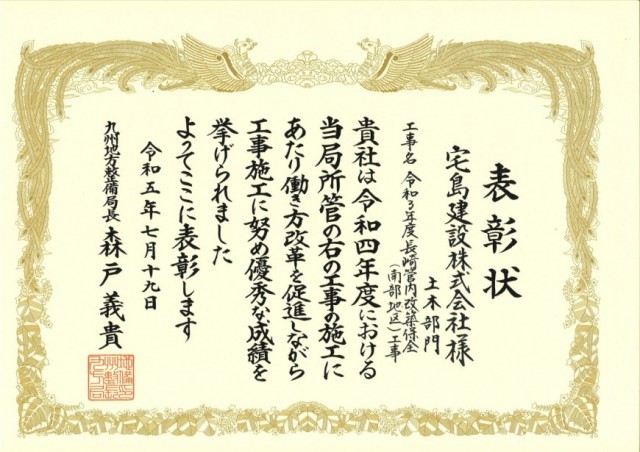 表彰状
宅島建設株式会社様
土木部門
工事名 令和3年度長崎管内改築保全
(南部地区)工事
貴社は令和四年度における
当局所管の右の工事の施工に
あたり働き方改革を促進しながら
工事施工に努め優秀な成績を
挙げられました
よってここに表彰します
令和五年七月十九日
九州地方整備局長 森戸義貴